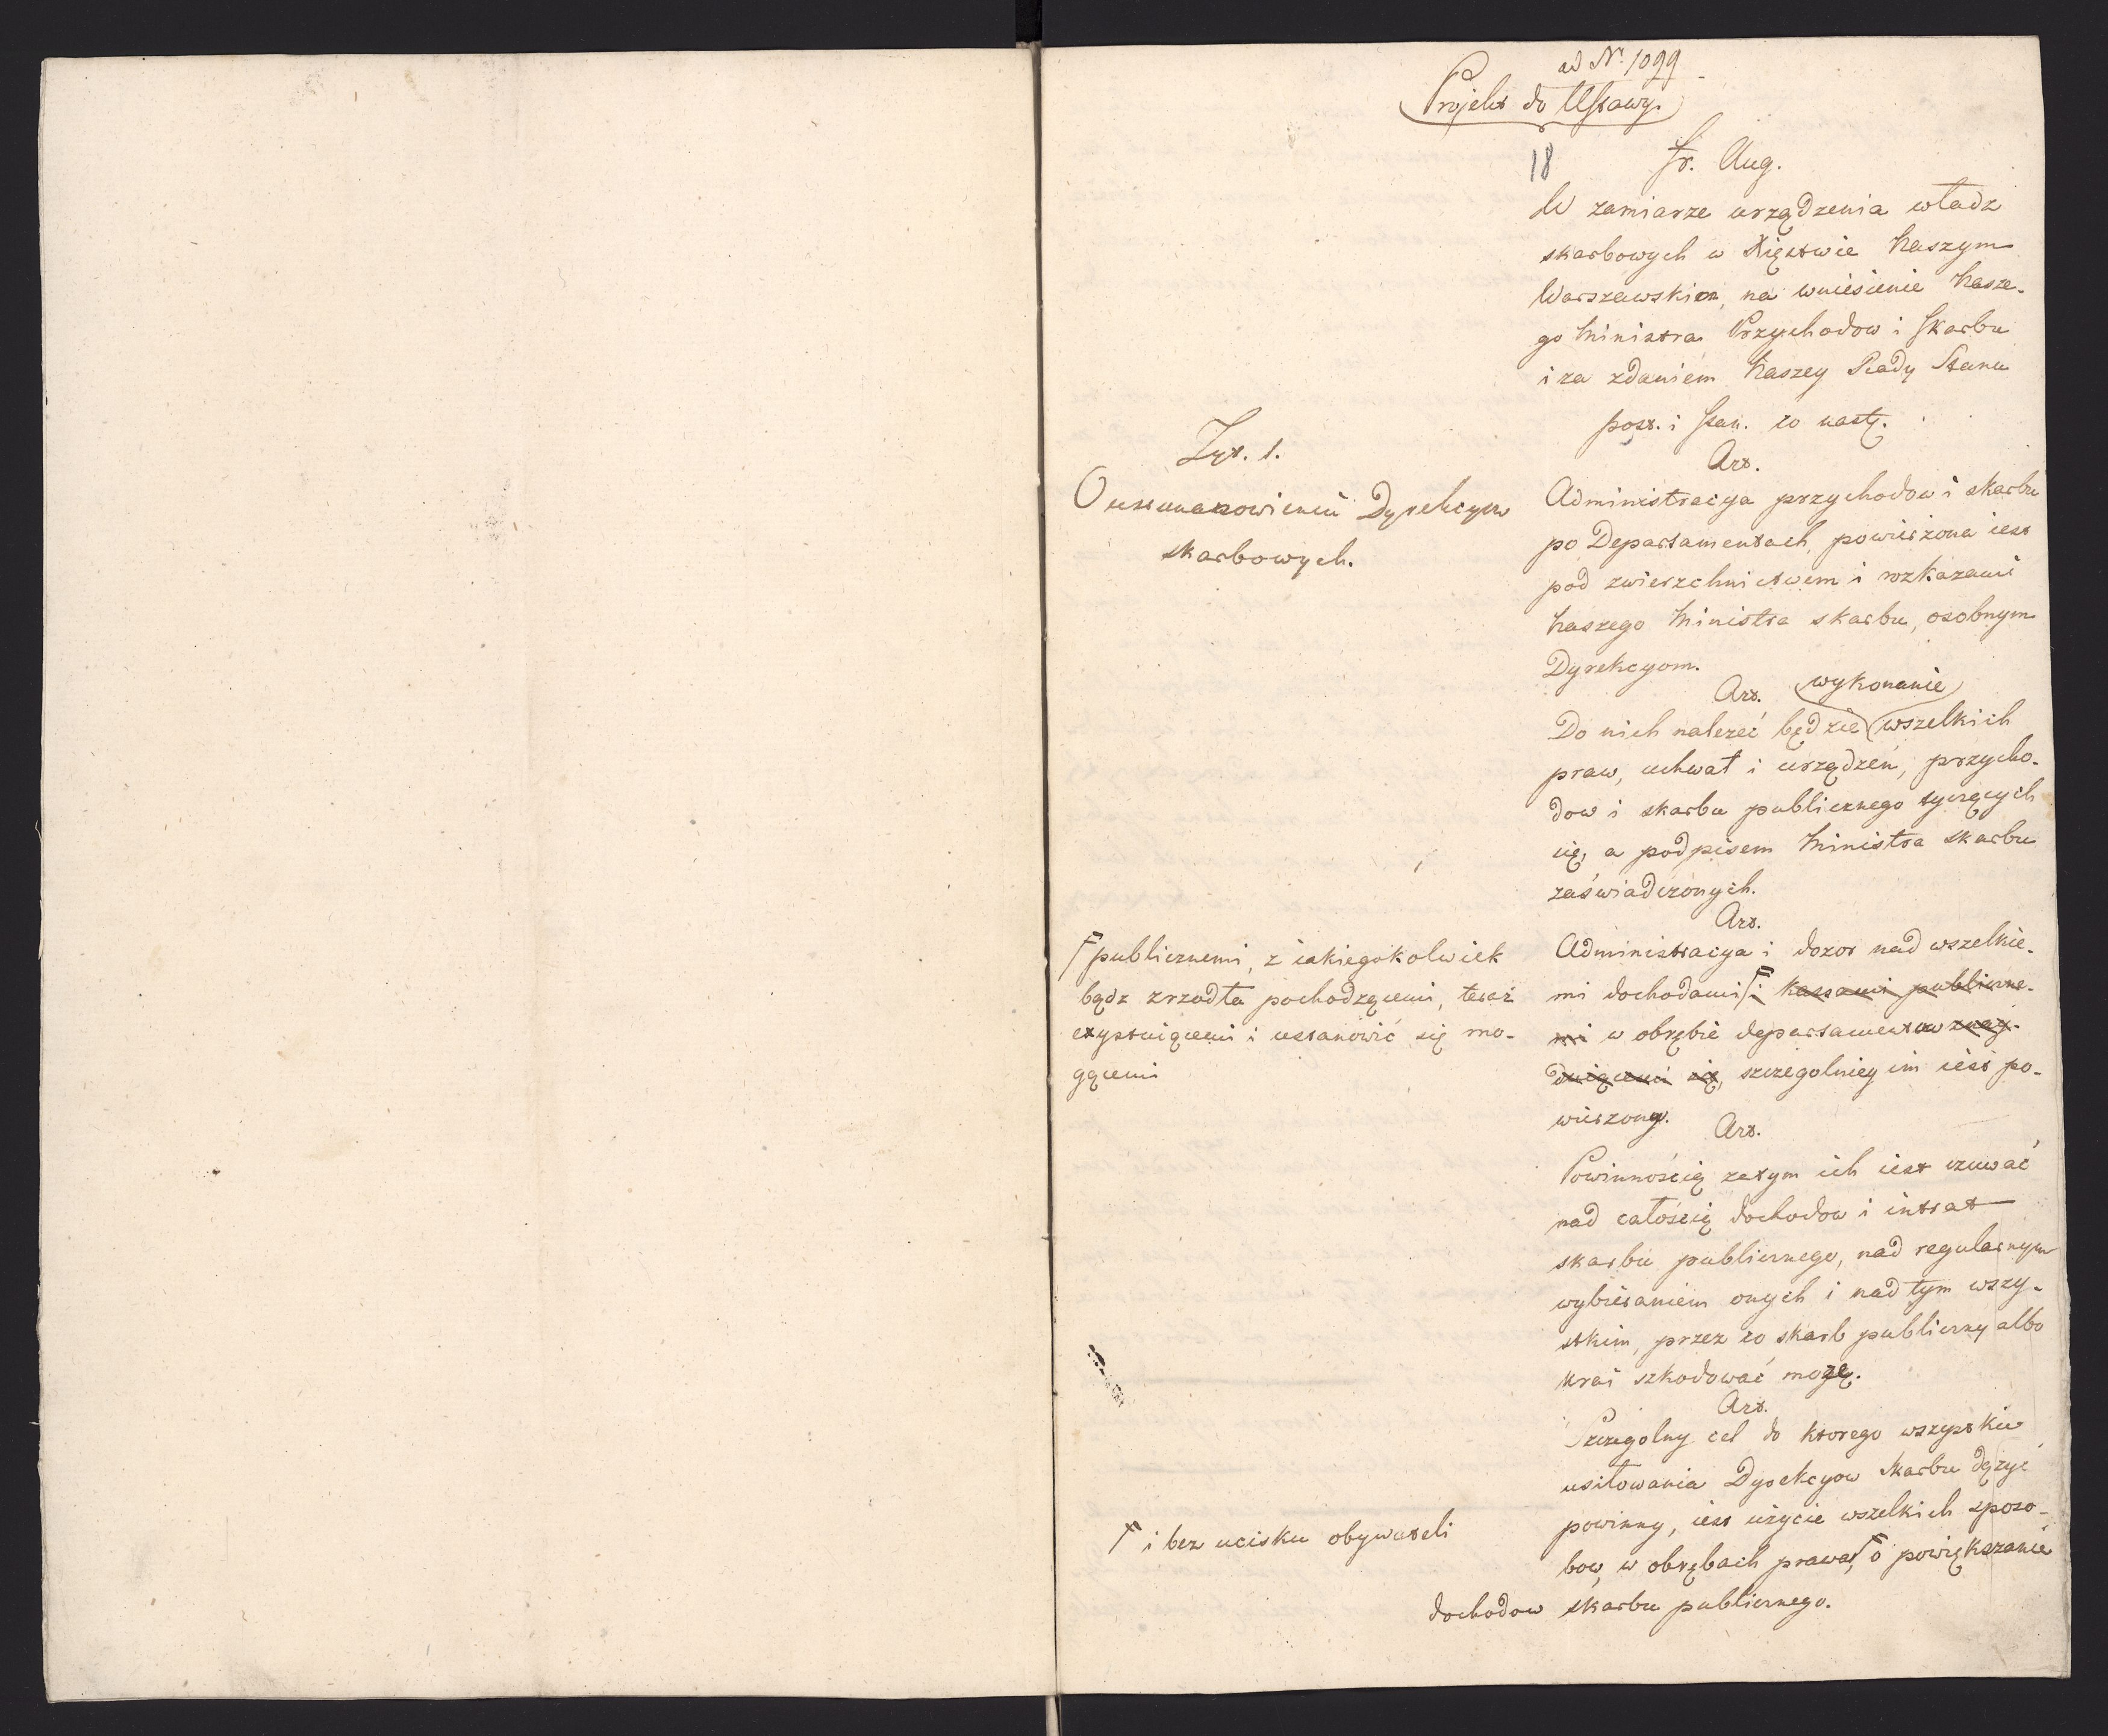 ad Nr. 1099
Projekt do Ustawy.
18
Fr. Aug.
W zamiarze urządzenia władz
skarbowych w Xięstwie Naszym
Warszawskim, na wniesienie Nasze-
go Ministra Przychodow i Skarbu
i za zdaniem Naszey Rady Stanu
post. i stan. co nastę.
Tyt. 1.
O ustanowieniu Dyrekcyow
skarbowych.
Art.
Administracya przychodow i skarbu
po Departamentach, powierzona iest
pod zwierzchnictwem i rozkazami
Naszego Ministra skarbu, osobnym
Dyrekcyom.
Art.
wykonanie
Do nich należeć będzie wszelkich
praw, uchwał i urządzeń, przycho-
dow i skarbu publicznego tyczących
się, a podpisem Ministra skarbu
zaświadczonych.
Art.
Administracya i dozor nad wszelkie-
mi dochodami i kassami publiczne-
mi w obrębie departamentow znay-
duiącemi się, szczegolniey im iest po-
wierzony.
publicznemi, z iakiegokolwiek
bądz zrzodła pochodzącemi, teraz
exystuiącemi i ustanowić się mo-
gącemi
Art.
Powinnością zatym ich iest czuwać
nad całością dochodow i intrat
skarbu publicznego, nad regularnym
wybieraniem onych i nad tym wszy-
stkim, przez co skarb publiczny albo
kray szkodować mogą.
Art.
Szczegolny cel do ktorego wszystkie
usiłowania Dyrekcyow skarbu dążyć
powinny, iest użycie wszelkich sposo-
bow, w obrębach prawa, o powiększanie
dochodow skarbu publicznego.
i bez ucisku obywateli